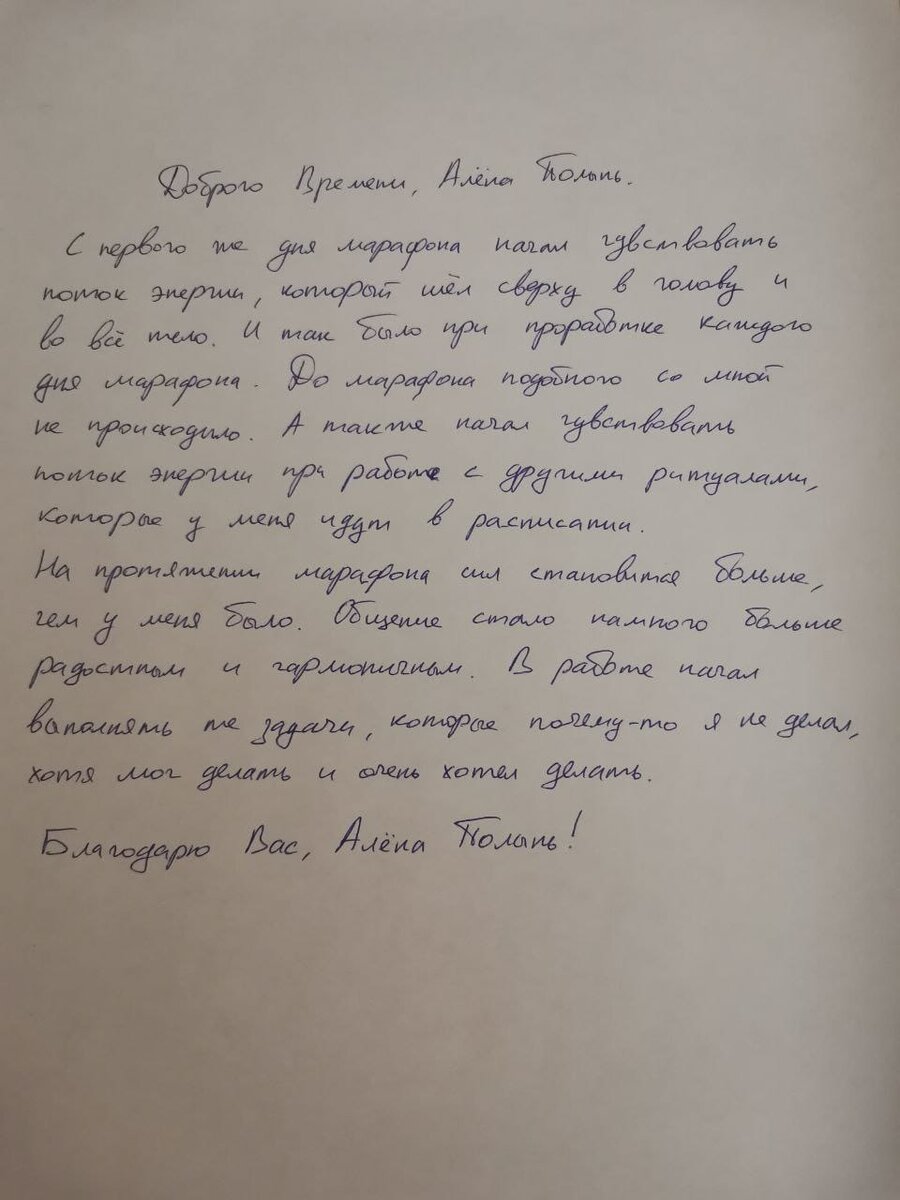 Доброго Времени, Алёна Полынь.
С первого же дня марафона начал чувствовать
поток энергии, который шёл сверху в голову и
во всё тело. И так было при проработке каждого
дня марафона. До марафона подобного со мной
не происходило. А также начал чувствовать
поток энергии при работе с другими ритуалами,
которые у меня идут в расписании.
На протяжении марафона сил становится больше,
чем у меня было. Общение стало намного больше
радостным и гармоничным. В работе начал
выполнять те задачи, которые почему-то я не делал,
хотя мог делать и очень хотел делать.
Благодарю Вас, Алёна Полынь!